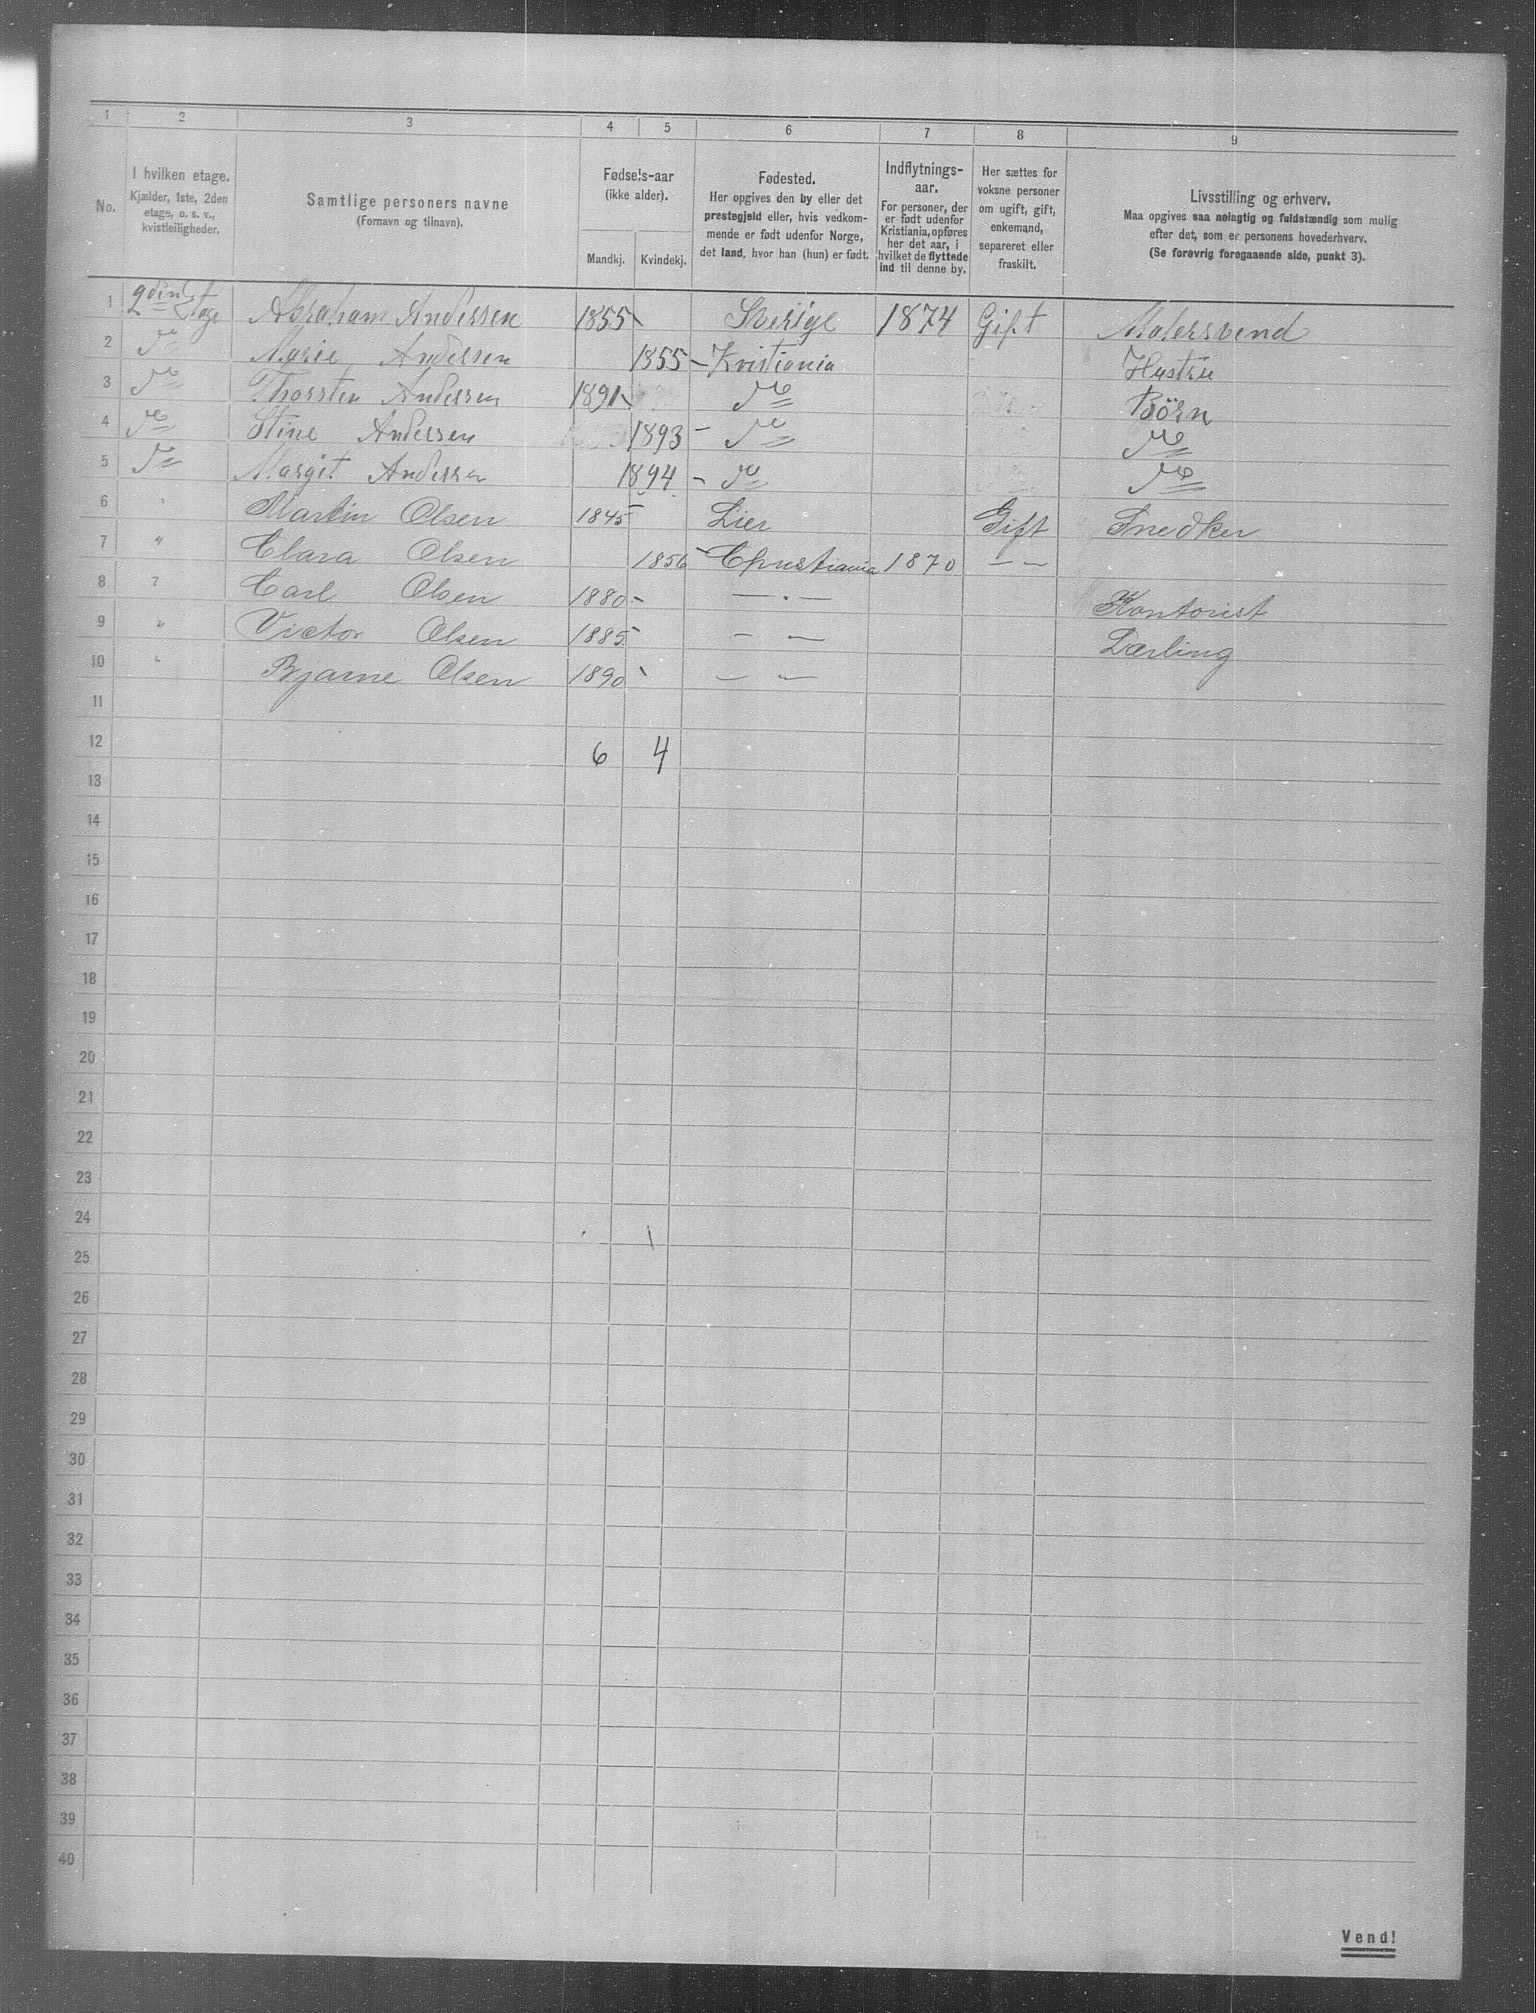 1 2 3 4 5 6 7 8 9
No.
I hvilken etage.
Kjælder, 1ste, 2den
etage, o. s. v.,
kvistleiligheder.
Samtlige personers navne
(Fornavn og tilnavn).
Fødsels-aar
(ikke alder).
Mandkj. Kvindekj.
Fødested.
Her opgives den by eller det
prestegjeld eller, hvis vedkom-
mende er født udenfor Norge,
det land, hvor han (hun) er født.
Indflytnings-
aar.
For personer, der
er født udenfor
Kristiania, opføres
her det aar, i
hvilket de flyttede
ind til denne by.
Her sættes for
voksne personer
om ugift, gift,
enkemand,
separeret eller
fraskilt.
Livsstilling og erhverv.
Maa opgives saa nøiagtig og fuldstændig som mulig
efter det, som er personens hovederhverv.
(Se forøvrig foregaaende side, punkt 3).
1 2den Etage Abraham Andersen 1855 Sverige 1874 Gift Malersvend
2 Do Marie Andersen 1855 – Kristiania Hustru
3 Do Thorsten Andersen 1891 Do Børn
4 Do Stine Andersen 1893 – Do Do
5 Do Margit Andersen 1894 – Do Do
6 " Martin Olsen 1845 – Lier Gift Snedker
7 " Clara Olsen 1856 – Christiania 1870 — —
8 " Carl Olsen 1880 – — " — Kontorist
9 " Victor Olsen 1885 – — — Lærling
10 " Bjarne Olsen 1890 — —
11
12 6 4
13
14
15
16
17
18
19
20
21
22
23
24
25
26
27
28
29
30
31
32
33
34
35
36
37
38
39
40
Vend!